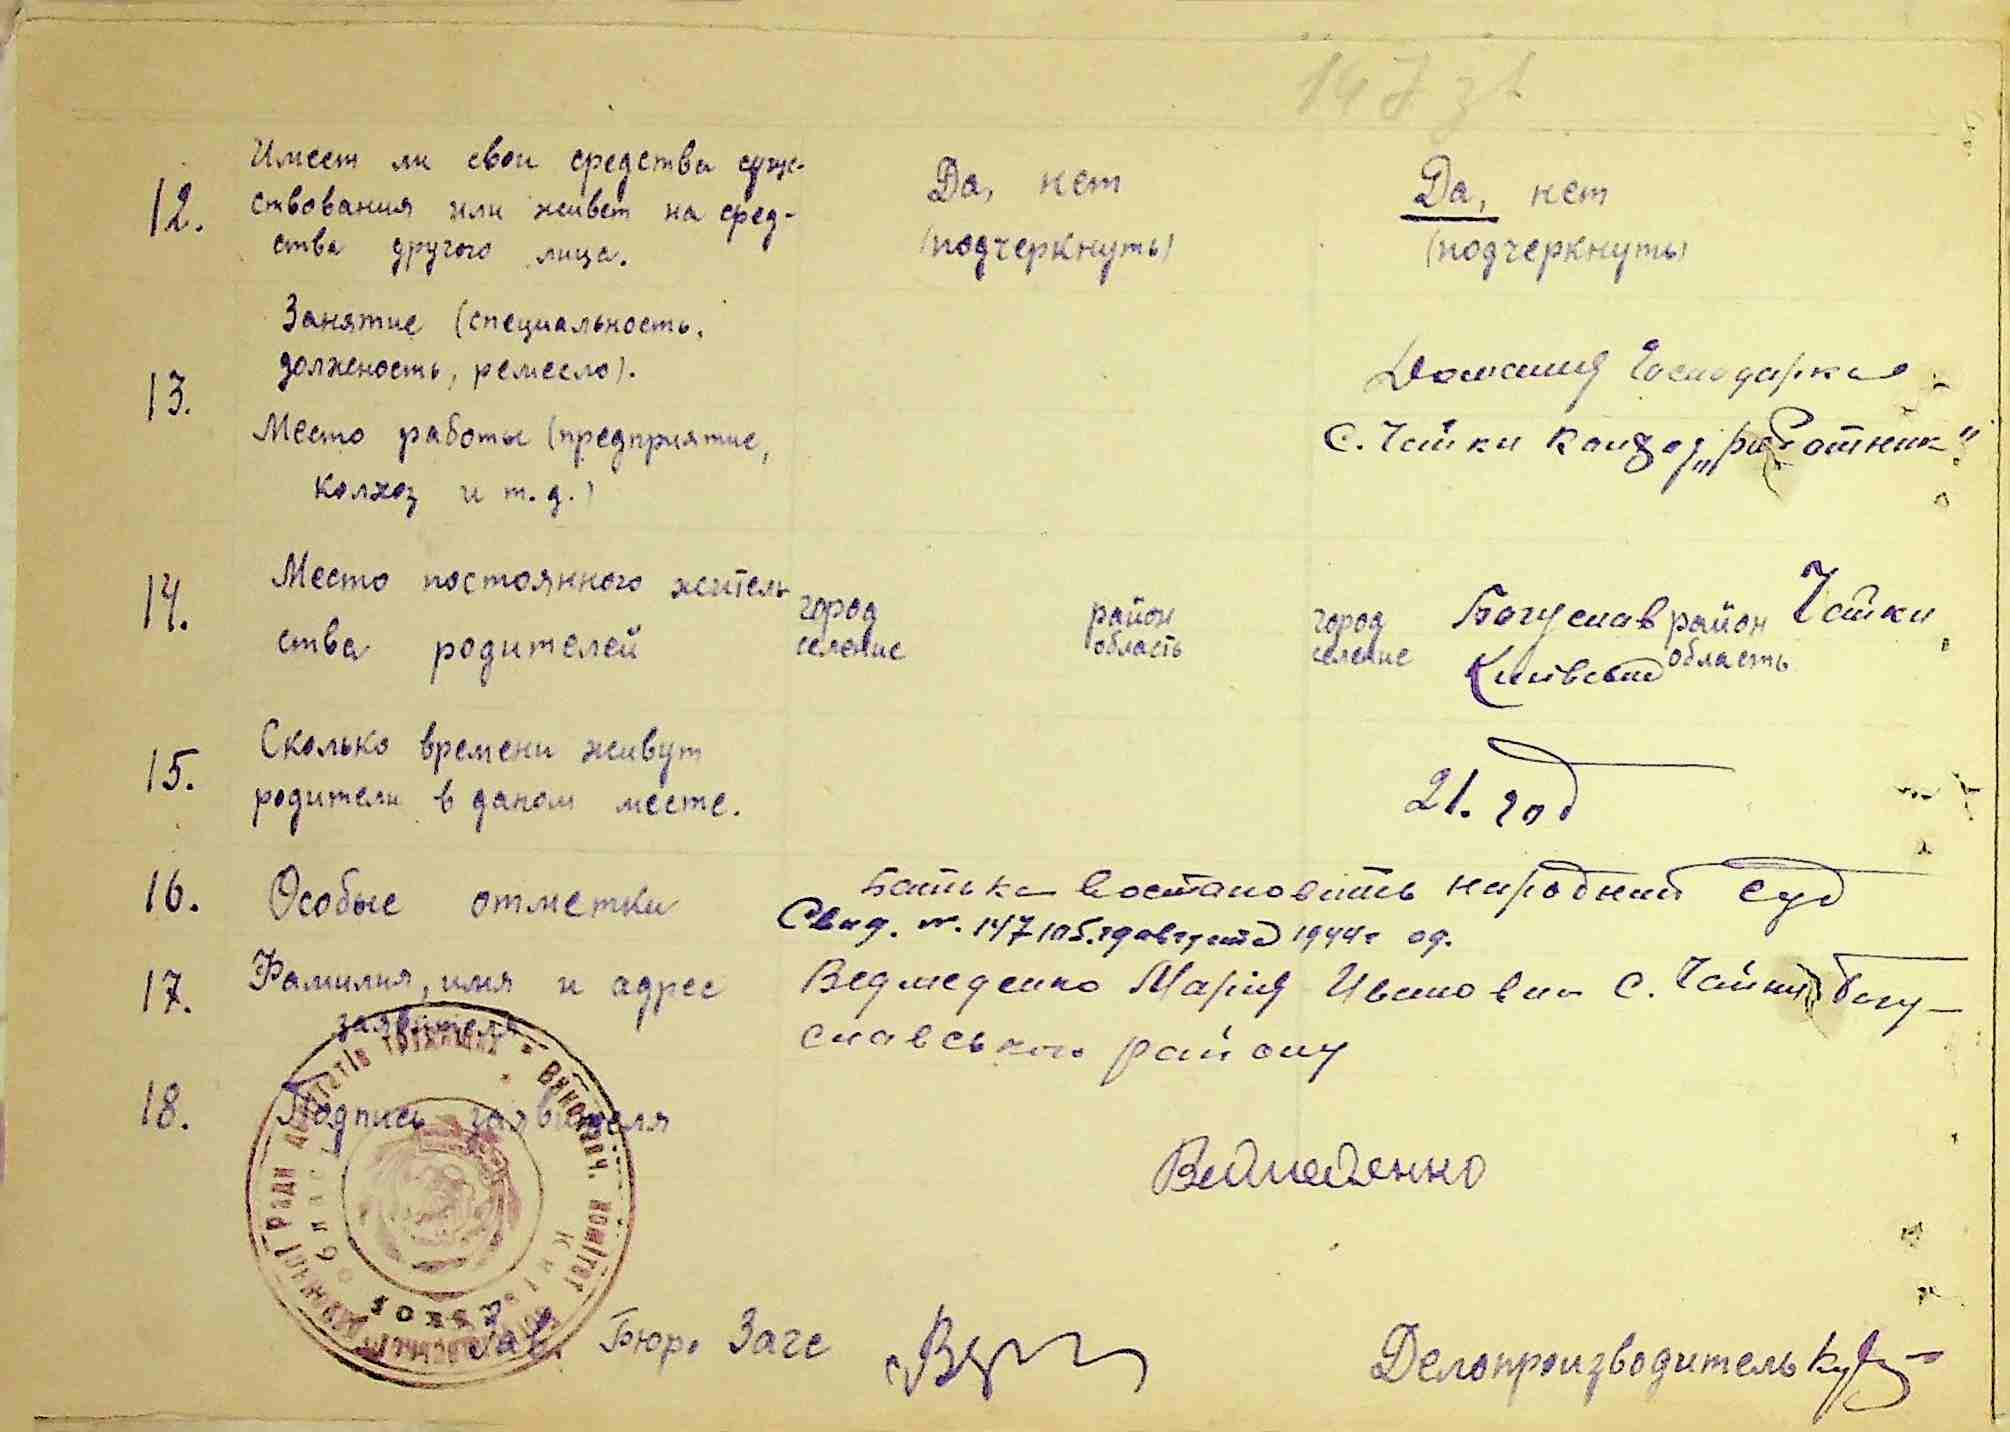 147 зв
12.
Имеет ли свои средства суще-
ствования или живет на сред-
ства другого лица.
Да, нет
(подчеркнуть)
Да, нет
(подчеркнуть)
13.
Занятие (специальность,
должность, ремесло).
Домашня Господарка
Место работы (предприятие,
колхоз и т.д.)
С. Чайки Колгоз „работник"
14.
Место постоянного житель
ства родителей
город
селение
район
область
город Богуслав район Чайки
селение Київської область
15.
Сколько времени живут
родители в даном месте.
21. год
16. Особые отметки
Батька востановить народний суд
Свид. №. 147 августа 1944 г од.
17. Фамилия, имя и адрес
заявителя
Ведмеденко Марія Ивановна С. Чайки Богу-
славського району
18. Подпись заявителя
Ведмеденко
Виконавч. комітет
Ради депутатів трудящих
область
Зав. Бюро Загс
Делопроизводитель